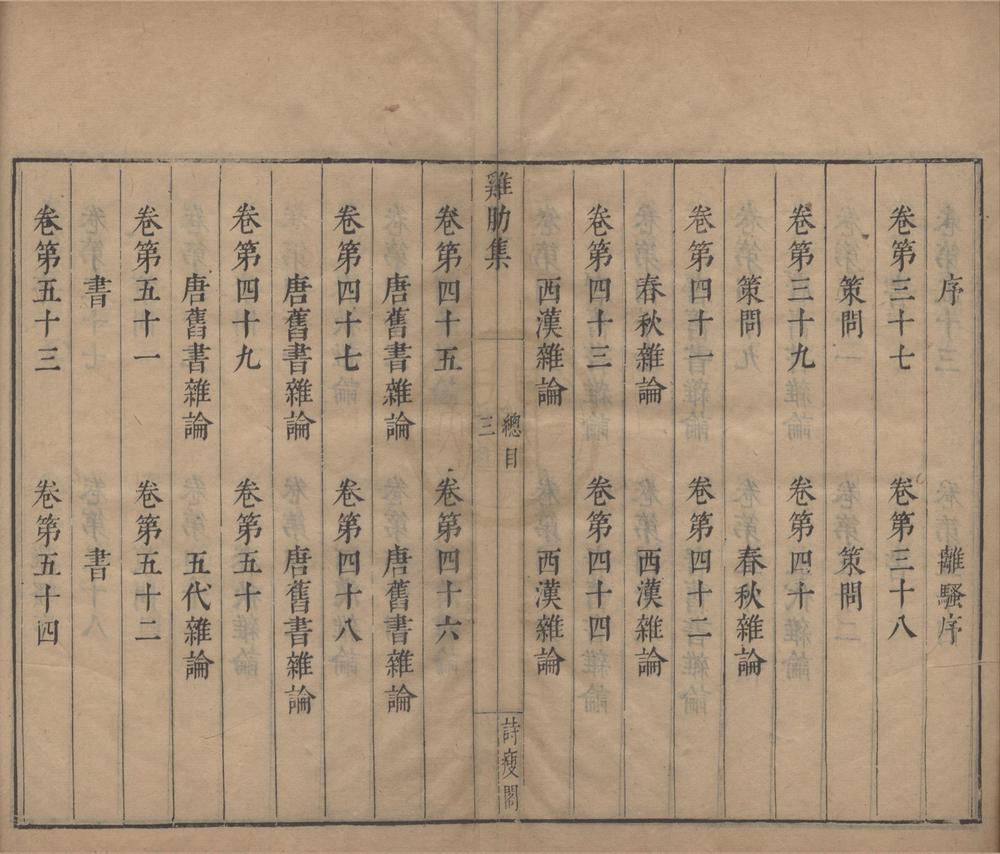 序　離騷序
卷第三十七　卷第三十八
策問　策問
卷第三十九　卷第四十
策問　春秋雜論
卷第四十一　卷第四十二
春秋雜論　西漢雜論
卷第四十三　卷第四十四
西漢雜論　西漢雜論
雞肋集　總目　三　詩瘦閣
卷第四十五　卷第四十六
唐舊書雜論　唐舊書雜論
卷第四十七　卷第四十八
唐舊書雜論　唐舊書雜論
卷第四十九　卷第五十
唐舊書雜論　五代雜論
卷第五十一　卷第五十二
書　書
卷第五十三　卷第五十四